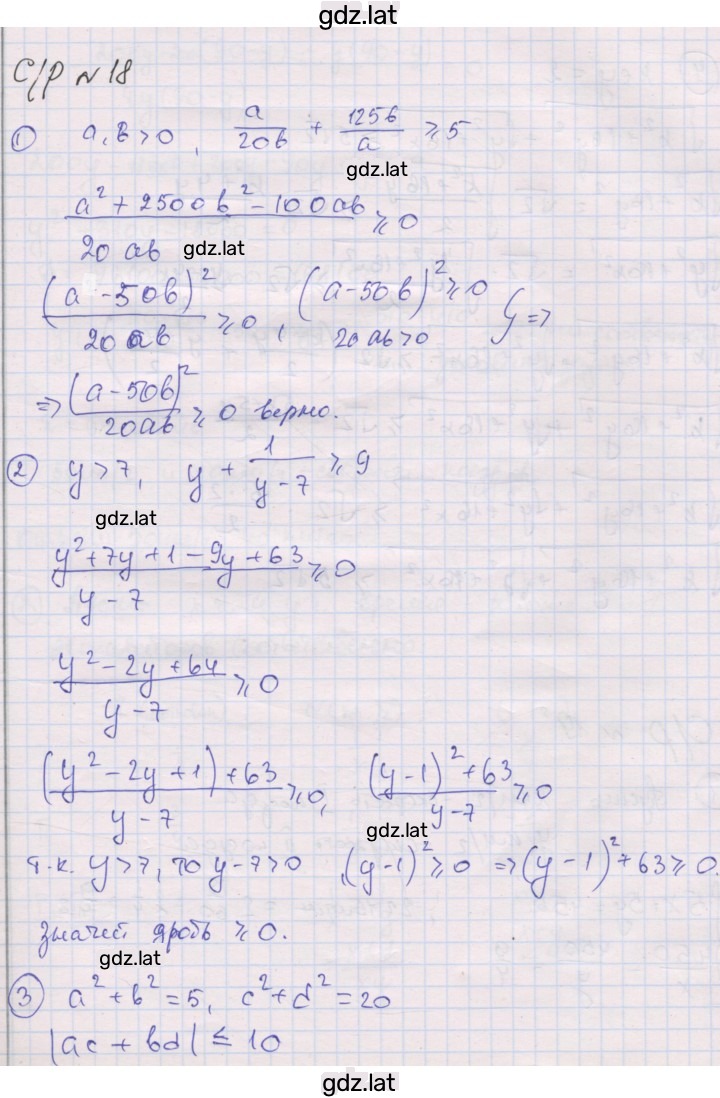 gdz.lat
С/р №18
① a, b > 0, a/20b + 125b/a ≥ 5
gdz.lat
(a² + 2500b² - 100ab)/20ab ≥ 0
gdz.lat
(a - 50b)²/20ab ≥ 0, (a - 50b)² ≥ 0 20ab > 0 } ⇒
⇒ (a - 50b)²/20ab ≥ 0 верно.
② y > 7, y + 1/(y - 7) ≥ 9
gdz.lat
(y² + 7y + 1 - 9y + 63)/(y - 7) ≥ 0
(y² - 2y + 64)/(y - 7) ≥ 0
((y² - 2y + 1) + 63)/(y - 7) ≥ 0, ((y - 1)² + 63)/(y - 7) ≥ 0
gdz.lat
т.к. y > 7, то y - 7 > 0, (y - 1)² ≥ 0 ⇒ (y - 1)² + 63 ≥ 0.
значит дробь ≥ 0.
gdz.lat
③ a² + b² = 5, c² + d² = 20
|ac + bd| ≤ 10
gdz.lat